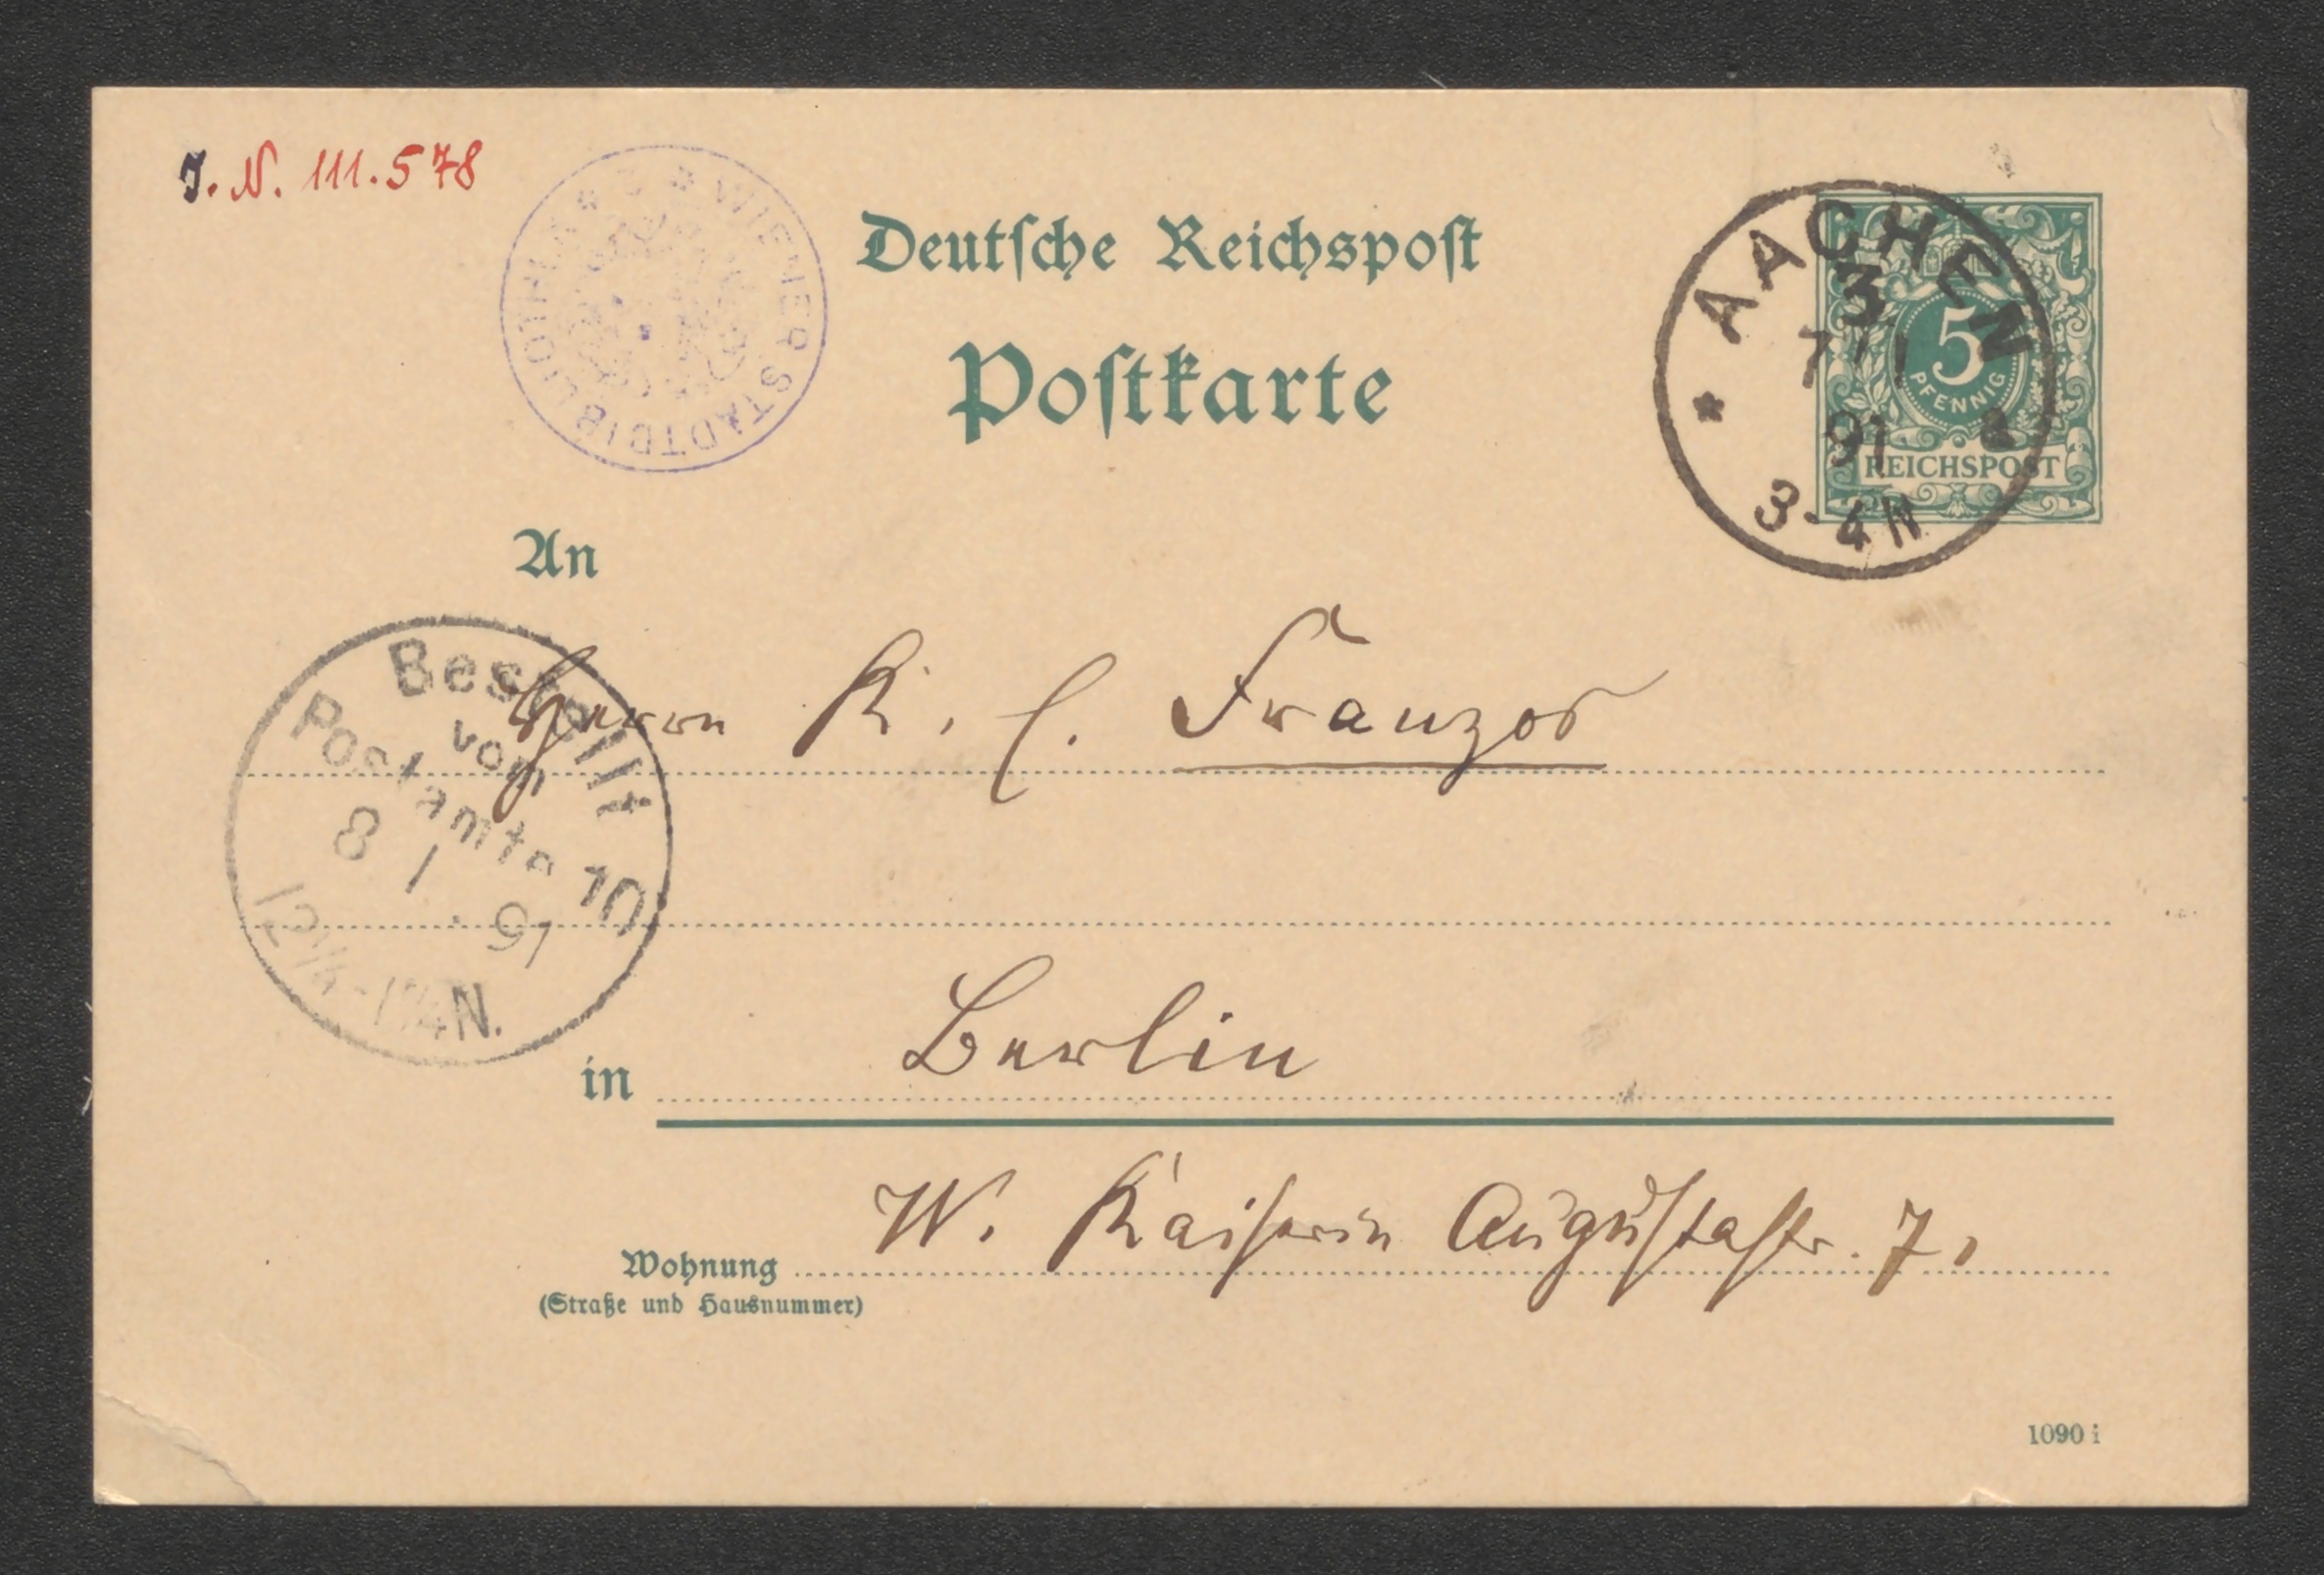 J. N. 111.578
WIENER STADTBIBLIOTHEK
Deutsche Reichspost
Postkarte
AACHEN
3
7/1
91
3-4N
5
PFENNIG
REICHSPOST
An
Bestellt
vom
Postamte 10
8 1 91
N.
Herrn K. E. Franzos
in Berlin
W. Kaiserin Augustastr. 7,
Wohnung
(Straße und Hausnummer)
1090 i